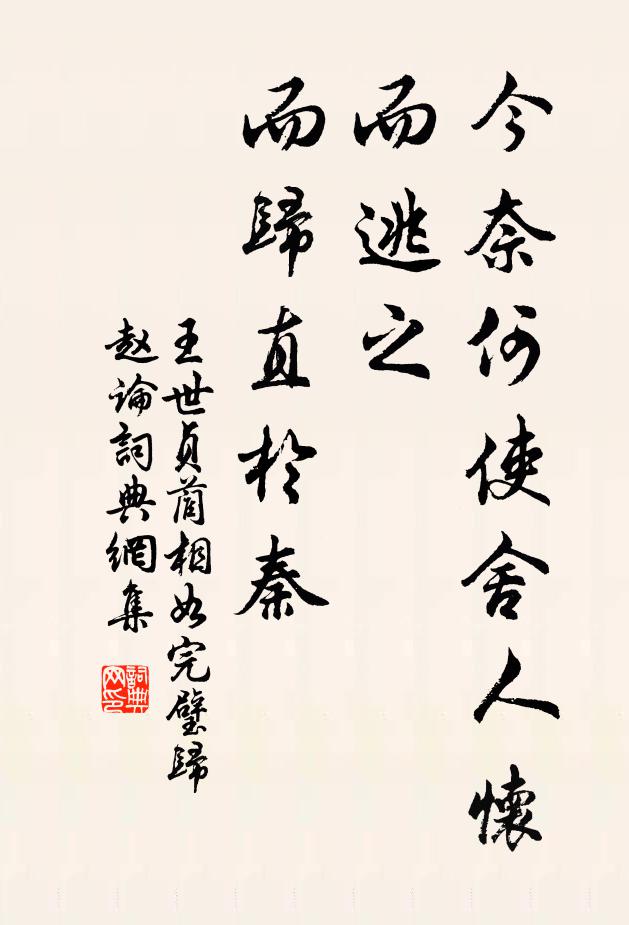 今奈何使舍人懷
而逃之
而歸直於秦
王世貞藺相如完璧歸
赵論詞典網集
詞典
网印